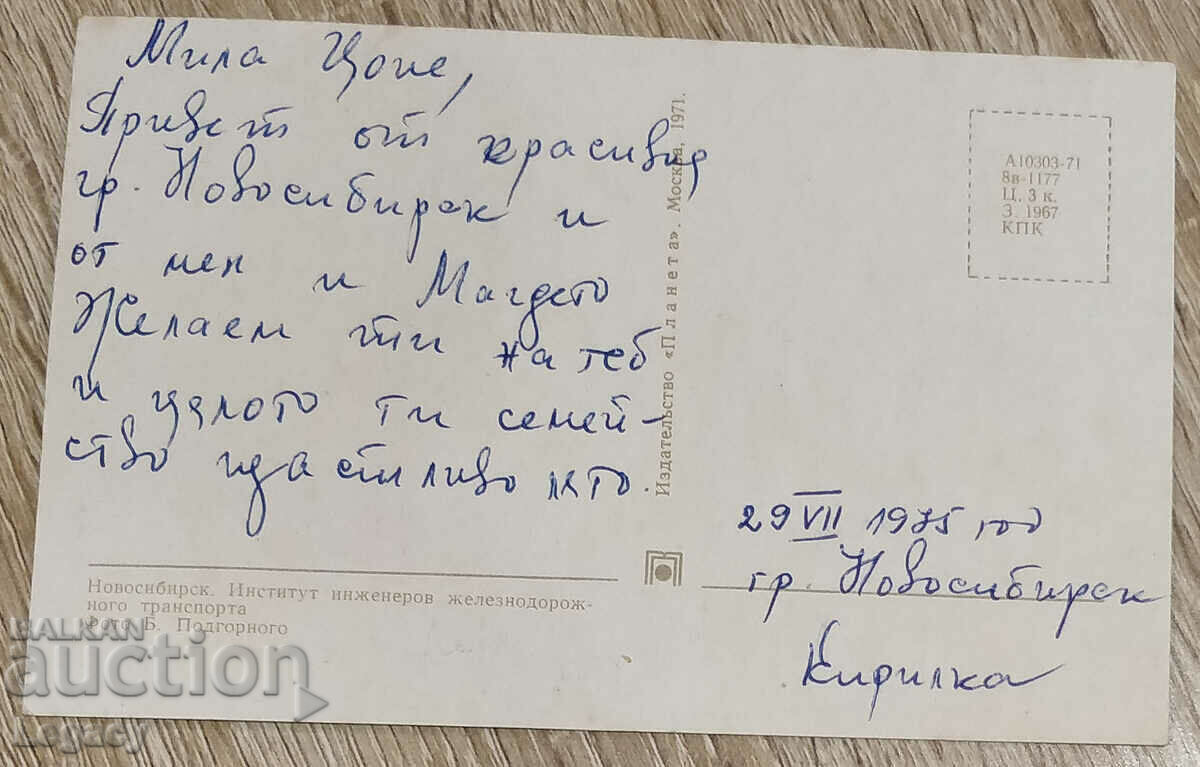 Мила Цоне,
Привет от красивия
гр. Новосибирск и
от мен и Магдето
Желаем ти на теб
и цялото ти семей-
ство щастливо лято.
Издательство «Планета». Москва, 1971.
А10303-71
8в-1177
Ц. 3 к.
З. 1967
КПК
29 VII 1975 год
гр. Новосибирск
Кирилка
Новосибирск. Институт инженеров железнодорож-
ного транспорта
Фото Б. Подгорного
BALKAN
auction
Legacy